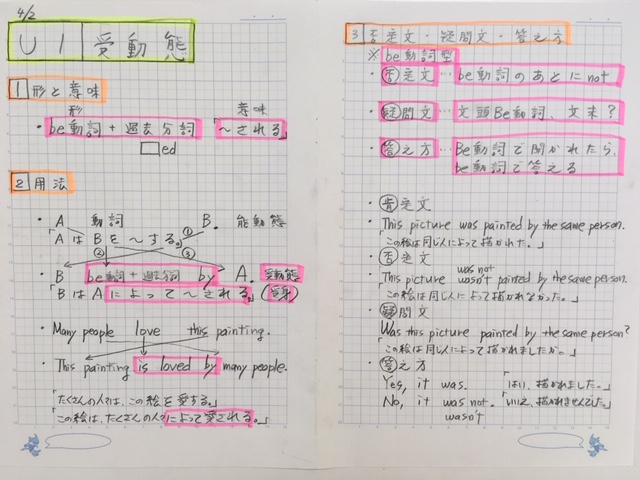 4/2
U1 受動態
1 形と意味
形 意味
・be動詞+過去分詞 「〜される」
□ed
2 用法
・A 動詞 B. 能動態
「AはBを〜する。」①
② ③
B be動詞+過去分詞 by A. 受動態
「BはAによって〜される。」(受身)
・Many people love this painting.
This painting is loved by many people.
「たくさんの人々は、この絵を愛する。」
「この絵は、たくさんの人々によって愛される。」
3 否定文・疑問文・答え方
※be動詞型
・否定文…be動詞のあとにnot
・疑問文…文頭Be動詞、文末?
・答え方…Be動詞で聞かれたら、
be動詞で答える
・肯定文
・This picture was painted by the same person.
「この絵は同じ人によって描かれた。」
・否定文
was not
This picture wasn't painted by the same person.
「この絵は同じ人によって描かれなかった。」
・疑問文
Was this picture painted by the same person?
「この絵は同じ人によって描かれましたか。」
・答え方
Yes, it was. 「はい、描かれました。」
No, it was not. 「いいえ、描かれませんでした。」
wasn't